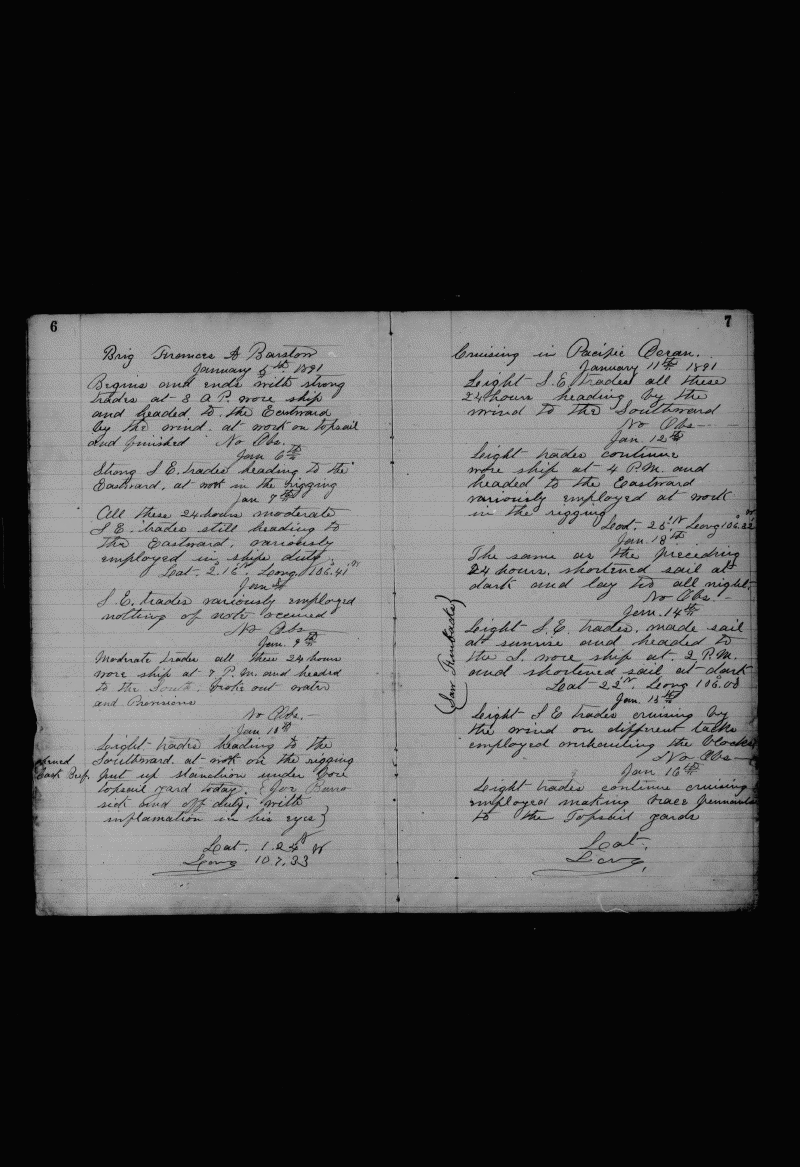 6
Brig Frances A Barstow
January 5th 1891
Begins and ends with strong
trades at 8 A P. wore ship
and headed to the Eastward
by the wind. at work on topsail
and finished No Obs.
Jan 6th
Strong S E. trades heading to the
Eastward, at work in the rigging
Jan 7th
All these 24 hours moderate
S E. trades still heading to
the Eastward, variously
employed in ships duty.
Lat. 2.16 Long. 106.41 W
Jan 8th
S. E. trades variously employed
nothing of note occured
No Obs
Jan. 9th
Moderate trades all these 24 hours
wore ship at 7 P.M. and headed
to the South. broke out water
and Provisions
No Obs. -
Jan 10th
Light trades heading to the
Southward. at work on the rigging
put up stanction under fore
topsail yard today. {Joe Barro
sick and off duty, with
inflamation in his eyes}
Lat. 1.24 N
Long 107.33 W
7
Cruising in Pacific Ocean.
January 11th 1891
Light S.E. trades all these
24 hours heading by the
wind to the Southward
No Obs
Jan. 12th
Light trades continue
wore ship at 4 P.M. and
headed to the Eastward
variously employed at work
in the rigging
Lat. Long 106.32 W
Jan. 13th
The same as the preceding
24 hours. shortened sail at
dark and lay to all night.
No Obs. -
Jan. 14th
Light S.E. trades. made sail
at sunrise and headed to
the S. wore ship at 2 P.M.
and shortened sail at dark
Lat Long 106.03
Jan. 15th
{Saw Finbacks}
Light S E trades cruising by
the wind on different tacks
employed overhauling the blocks
No Obs
Jan 16th
Light trades continue cruising
employed making brace pennants
to the Topsail yards
Lat.
Long.